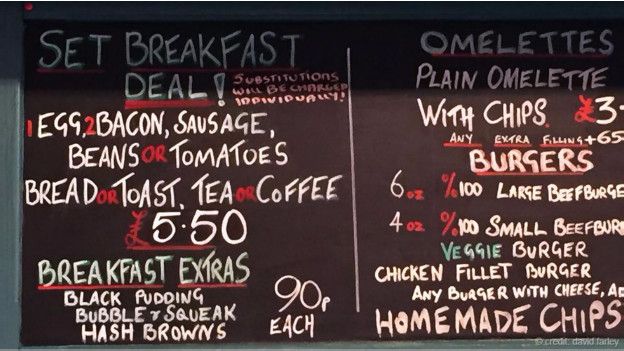 SET BREAKFAST
DEAL!
SUBSTITUTIONS
WILL BE CHARGED
INDIVIDUALLY!
1 EGG, 2 BACON, SAUSAGE,
BEANS OR TOMATOES
BREAD OR TOAST, TEA OR COFFEE
£5.50
BREAKFAST EXTRAS
BLACK PUDDING
BUBBLE & SQUEAK
HASH BROWNS
90p
EACH
OMELETTES
PLAIN OMELETTE
WITH CHIPS. £3
ANY EXTRA FILLING +65
BURGERS
6 oz %100 LARGE BEEFBURGE
4 oz %100 SMALL BEEFBUR
VEGGIE BURGER
CHICKEN FILLET BURGER
ANY BURGER WITH CHEESE, AD
HOMEMADE CHIPS
© credit: david farley